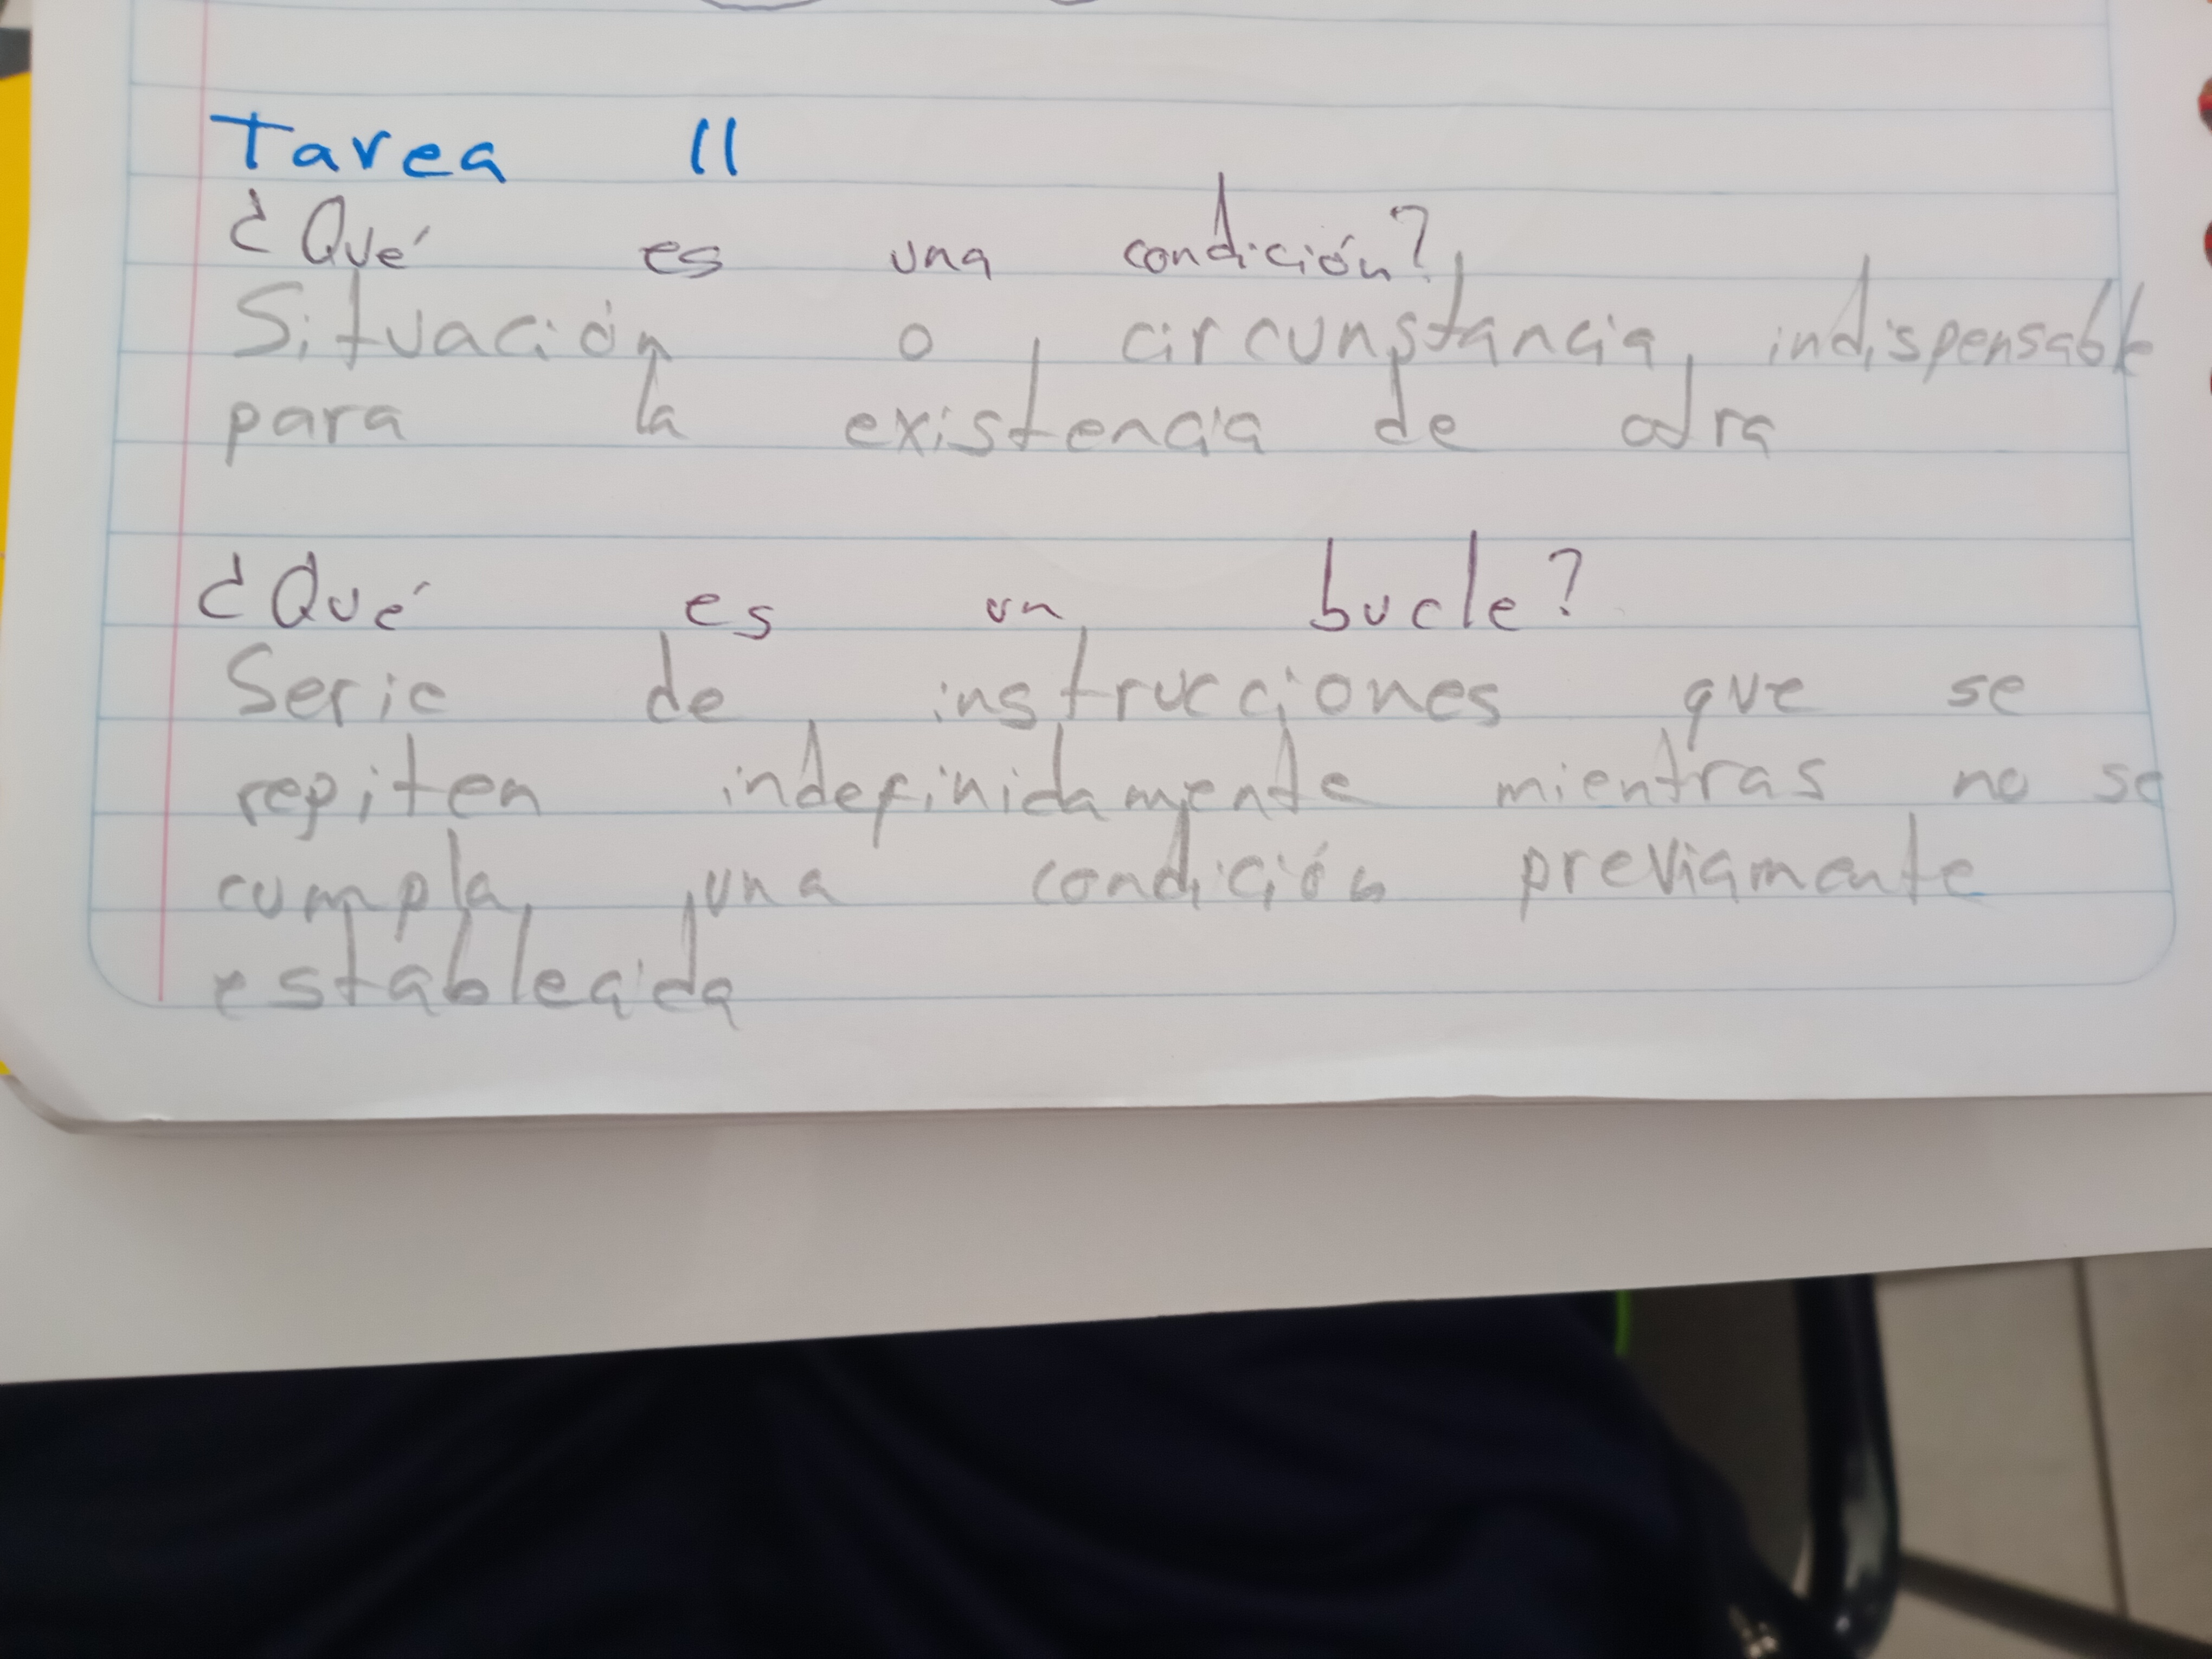 Tarea 11
¿Qué es una condición?
Situación o circunstancia indispensable
para la existencia de otra
¿Qué es un bucle?
Serie de instrucciones que se
repiten indefinidamente mientras no se
cumpla una condición previamente
establecida